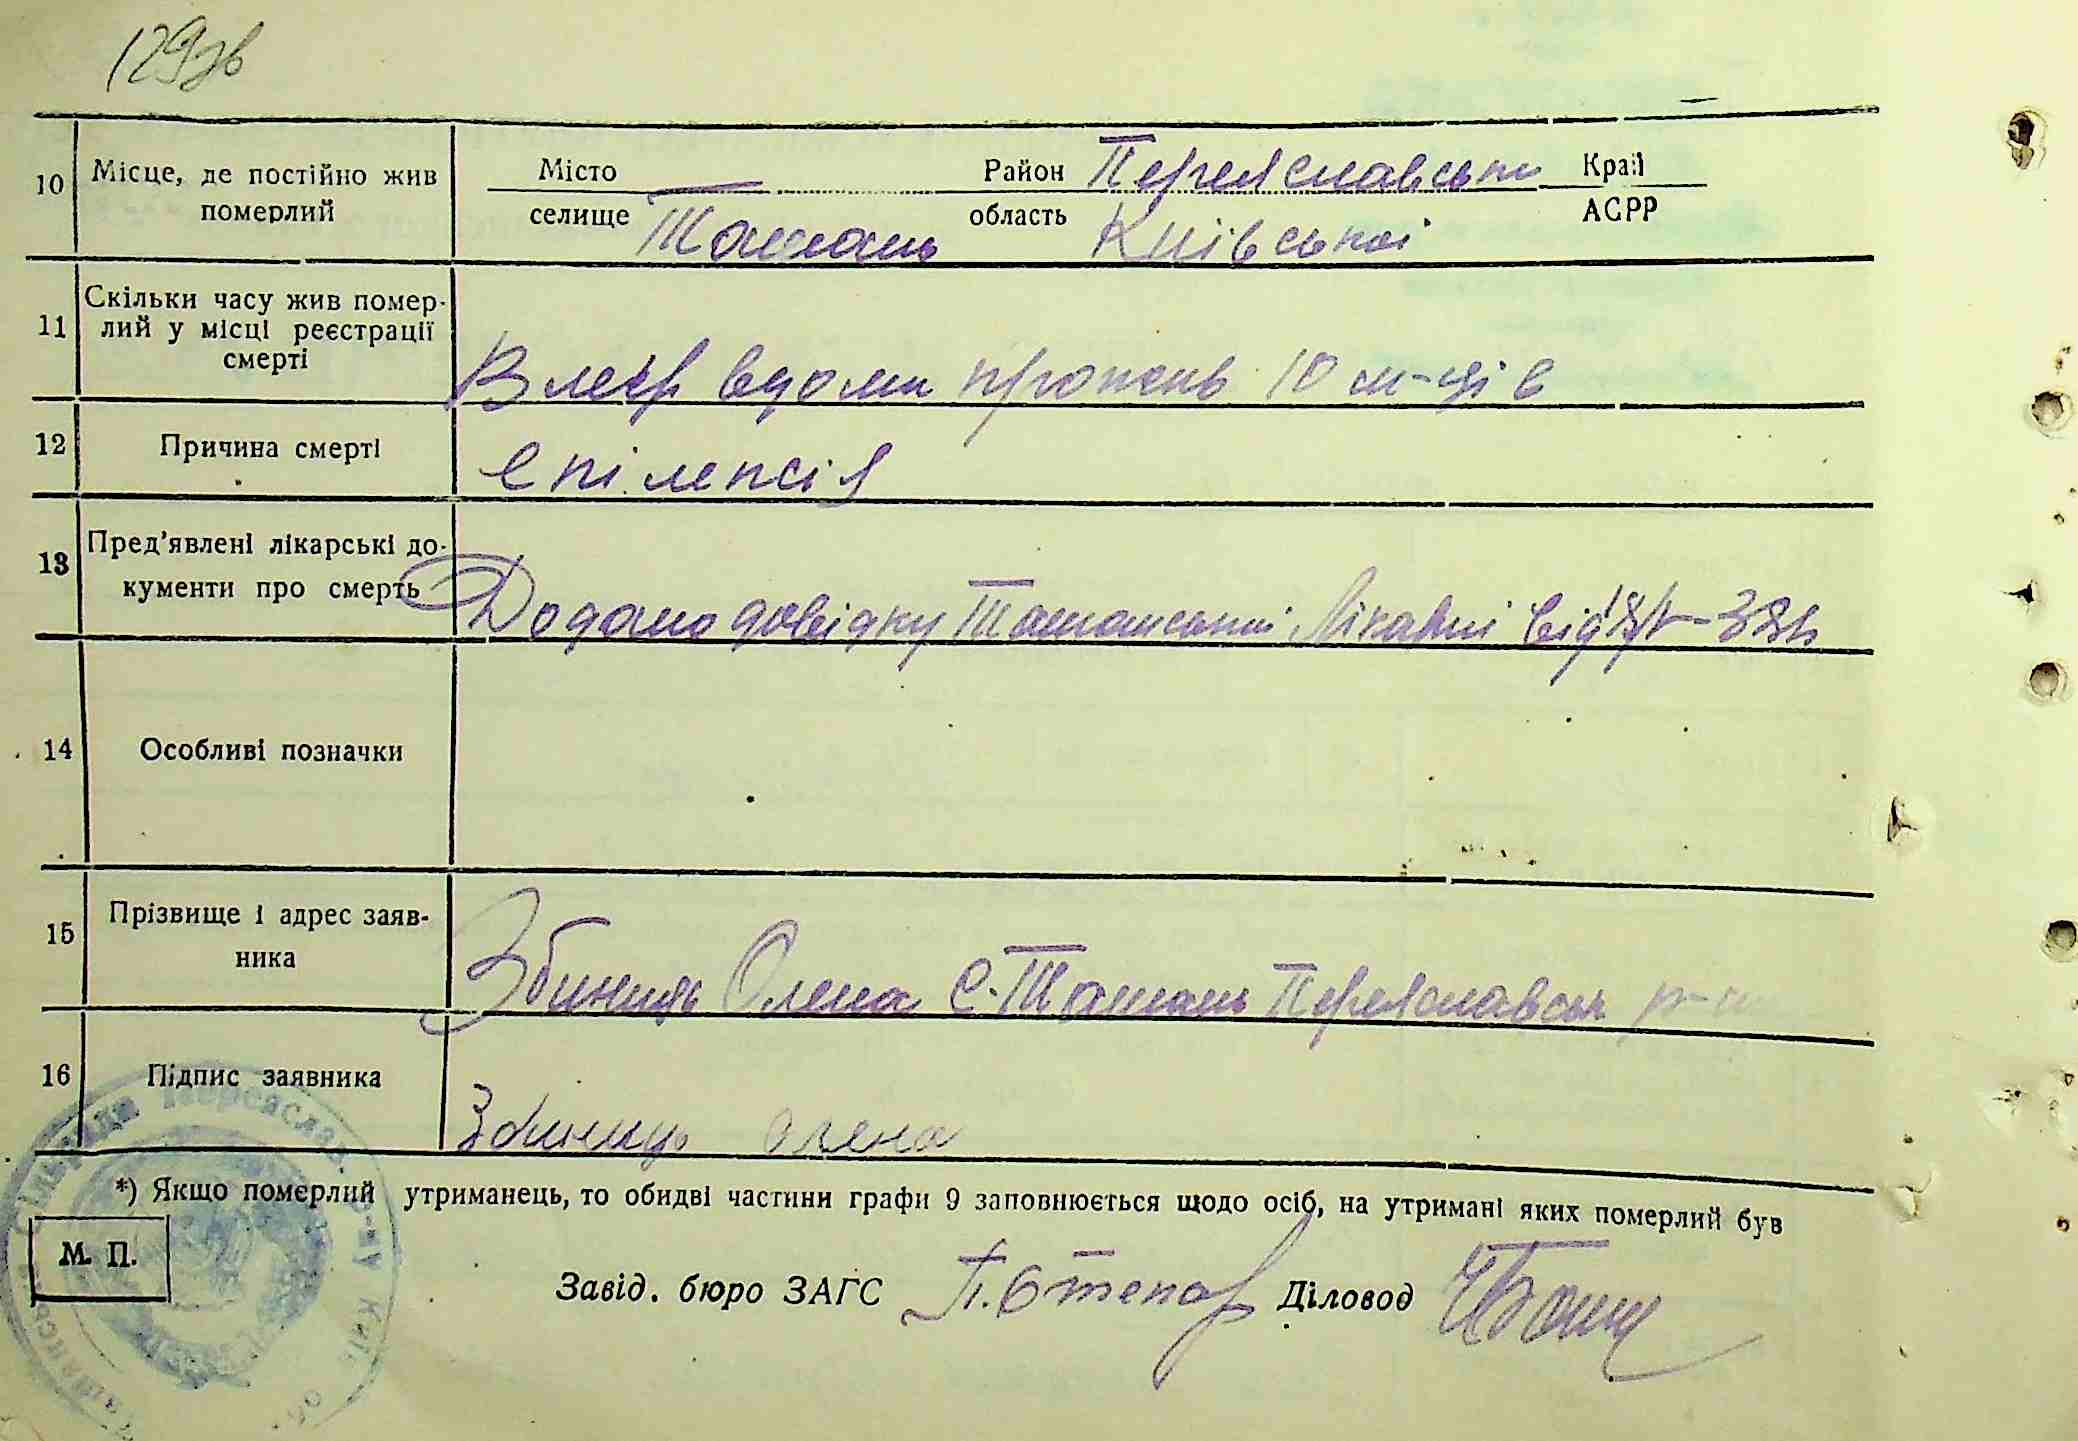 129зв
10 Місце, де постійно жив Місто — Район Переяславський Край
померлий селище Ташань область Київської АСРР
11 Скільки часу жив помер-
лий у місці реєстрації
смерті
В вдома 10 м-ців
12 Причина смерті епілепсія
13 Пред'явлені лікарські до-
кументи про смерть Додано довідку Ташанської Лікарні від
14 Особливі позначки
15 Прізвище і адрес заяв-
ника Збиниць Олена с. Ташань Переяславськ р-н
16 Підпис заявника Збиниць олена
*) Якщо померлий утриманець, то обидві частини графи 9 заповнюється щодо осіб, на утримані яких померлий був
М. П.
Завід. бюро ЗАГС Діловод
сільрада Переяслав. р-ну Київ. обл.